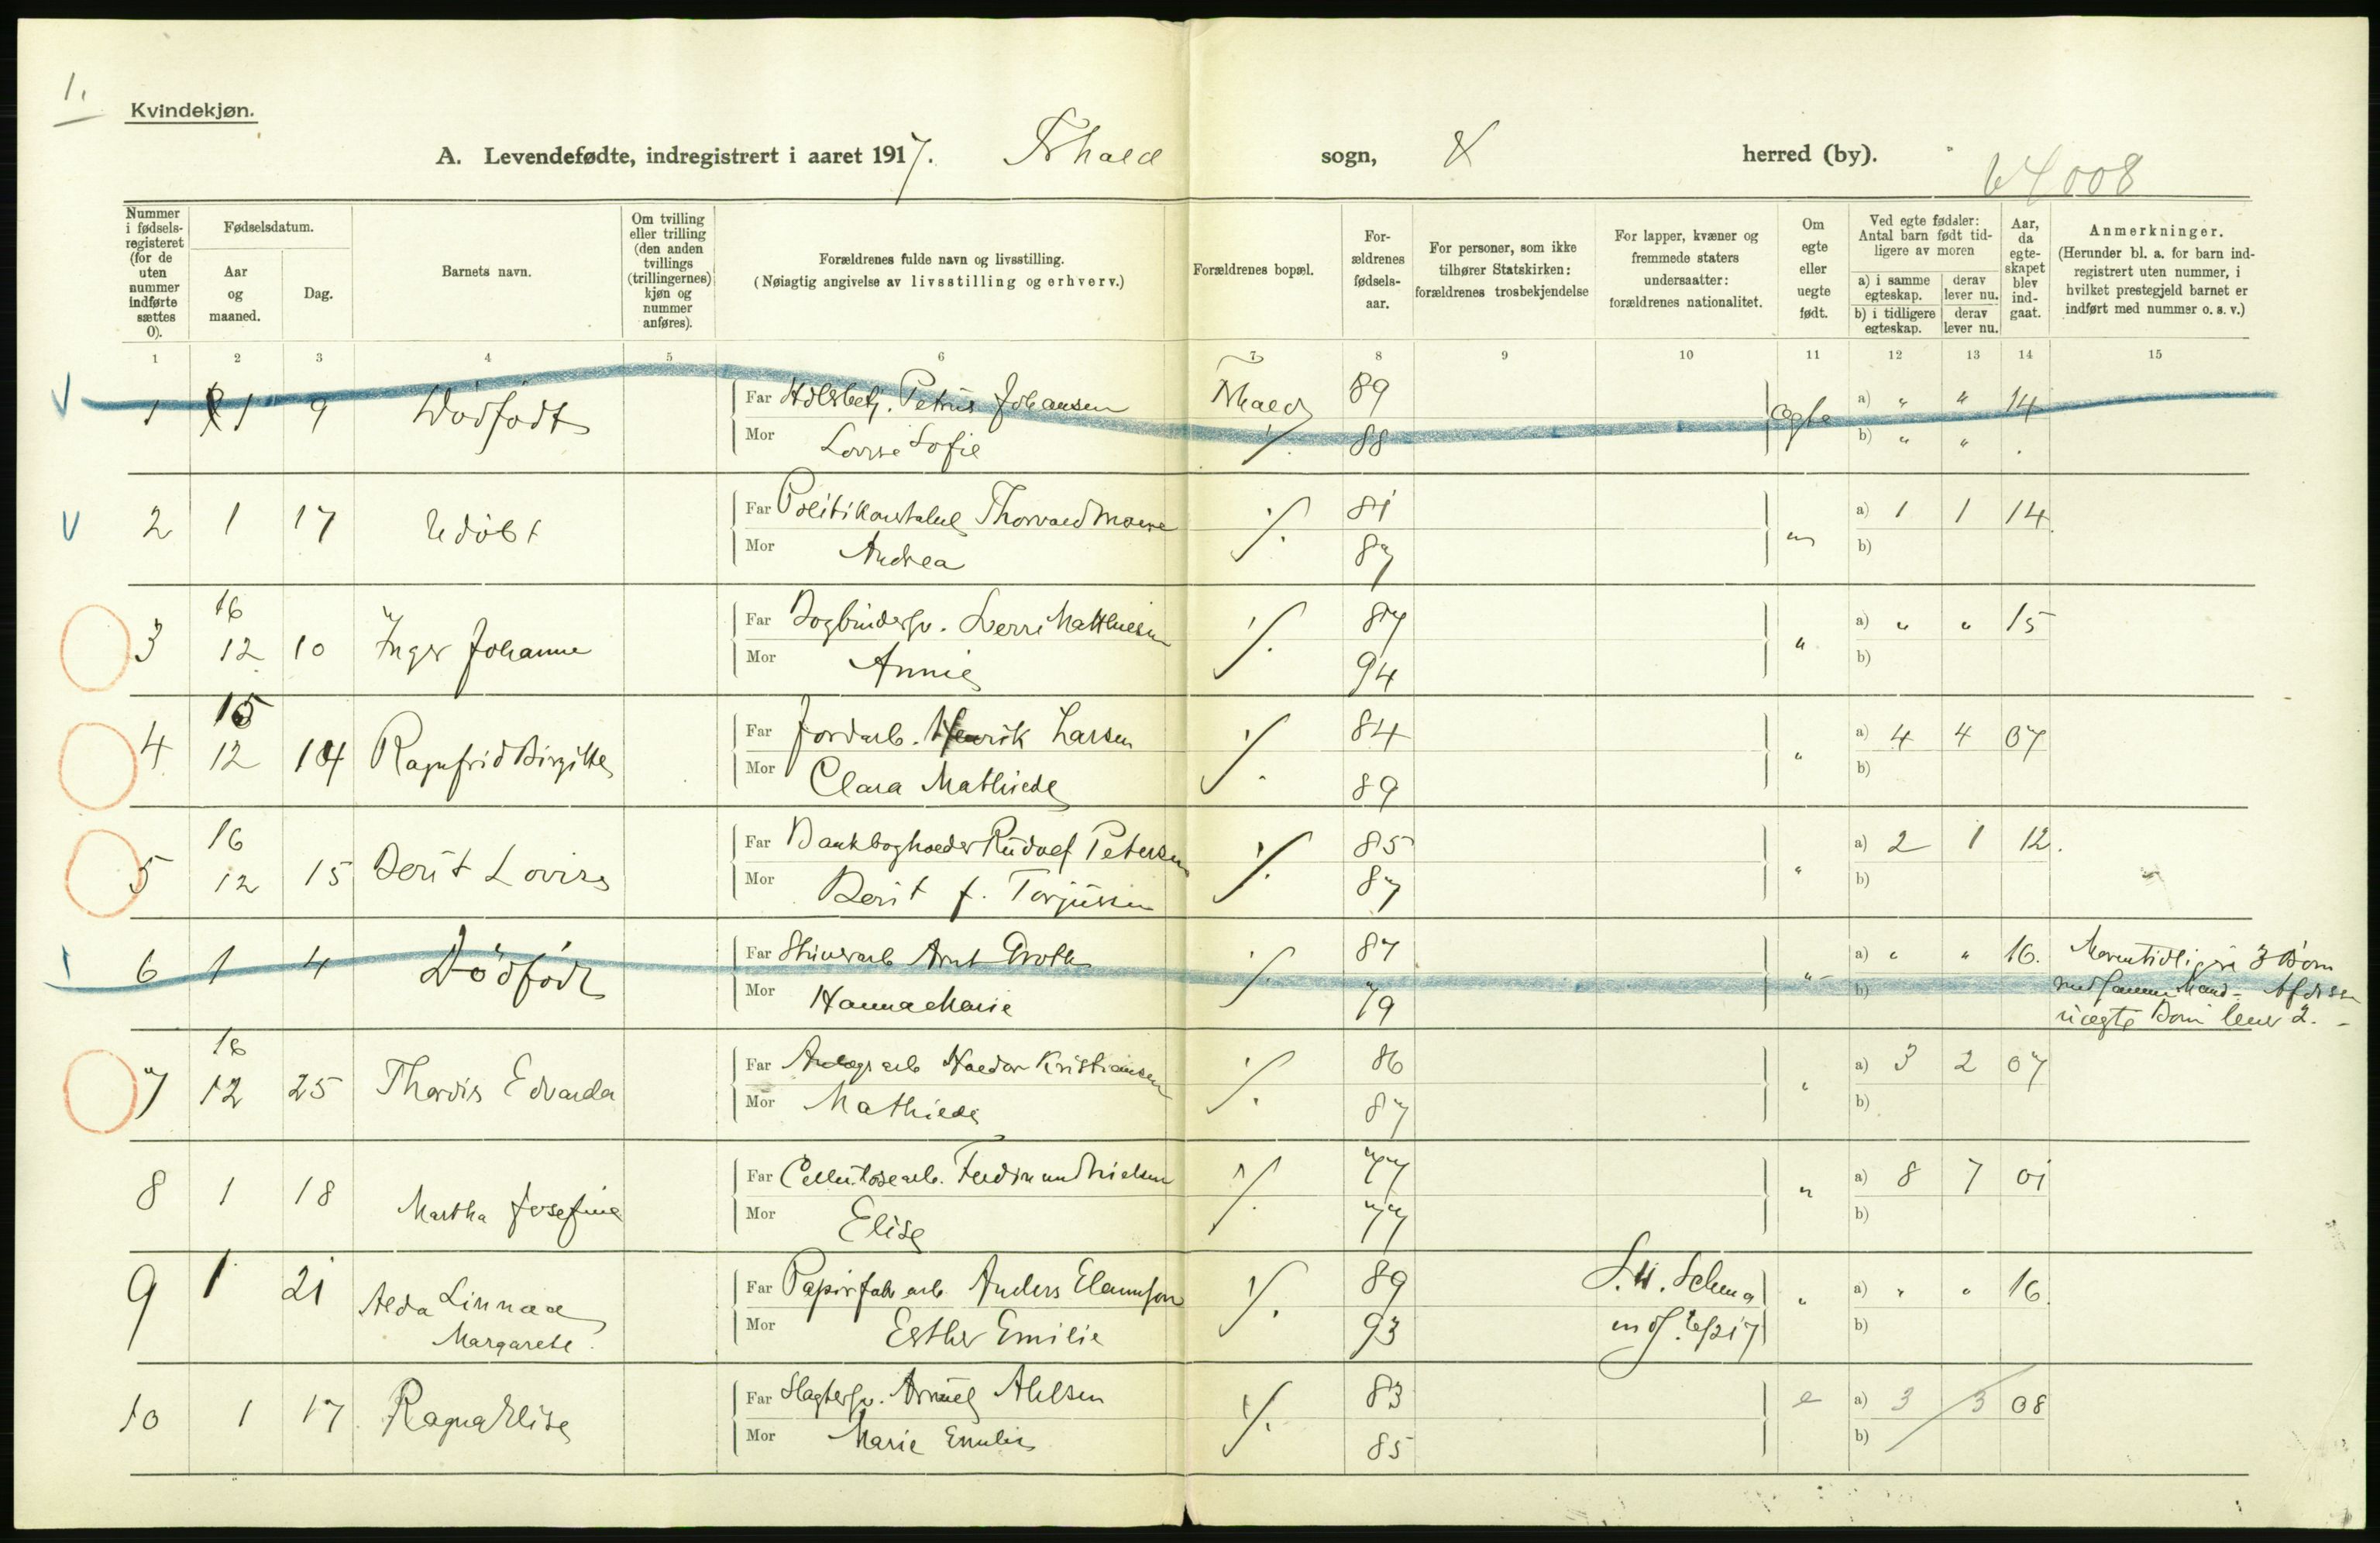 1.
Kvindekjøn.
A. Levendefødte, indregistrert i aaret 1917. Frhald sogn, herred (by).
Nummer i fødselsregisteret (for de uten nummer indførte sættes 0).
Fødselsdatum.
Aar og maaned.
Dag.
Barnets navn.
Om tvilling eller trilling (den anden tvillings (trillingernes) kjøn og nummer anføres).
Forældrenes fulde navn og livsstilling.
(Nøiagtig angivelse av livsstilling og erhverv.)
Forældrenes bopæl.
Forældrenes fødselsaar.
For personer, som ikke tilhører Statskirken: forældrenes trosbekjendelse
For lapper, kvæner og fremmede staters undersaatter: forældrenes nationalitet.
Om egte eller uegte født.
Ved egte fødsler: Antal barn født tidligere av moren
a) i samme egteskap.
derav lever nu.
b) i tidligere egteskap.
derav lever nu.
Aar, da egteskapet blev indgaat.
Anmerkninger.
(Herunder bl. a. for barn indregistrert uten nummer, i hvilket prestegjeld barnet er indført med nummer o. s. v.)
1 2 3 4 5 6 7 8 9 10 11 12 13 14 15
1 1 9 Dødfødt Far Petrus Johansen Frhald 89 Egte a) " " 14
Mor Lovise Sofie ./. 88 b) " "
2 1 17 Udöbt Far Politikonstabel Thorvald Moene ./. 81 " a) 1 1 14
Mor Andrea 87 b)
16
3 12 10 Inger Johanne Far Bogbindersv. Sverre Matthiesen ./. 87 " a) " " 15
Mor Annie 94 b)
15
4 12 14 Ragnfrid Birgitte Far Jordarb. Henrik Larsen ./. 84 " a) 4 4 07
Mor Clara Mathilde 89 b)
16
5 12 15 Berit Lovise Far Bankbogholder Rudolf Petersen ./. 85 " a) 2 1 12.
Mor Berit f. Torjussen 87 b)
6 1 4 Dödfödt Far Arnt Groth ./. 87 " a) " " 16. Moren tidligere 3 Börn
Mor Hanna Marie 79 b) med samme Mand - Af disse
uægte Börn lever 2. -
16
7 12 25 Thordis Edvarda Far Anlægsarb Haldor Kristiansen ./. 86 " a) 3 2 07
Mor Mathilde 87 b)
8 1 18 Martha Josefine Far Cellulosearb. Ferdinand Nielsen ./. 77 " a) 8 7 01
Mor Elise 77 b)
9 1 21 Alda Linnea Far Papirfab arb. Anders ./. 89 " a) " " 16
Margarete Mor Esther Emilie 93 b)
10 1 17 Ragna Elise Far Slagtersv. Ahlsen ./. 83 e a) 3 3 08
Mor Marie Emilie 85 b)